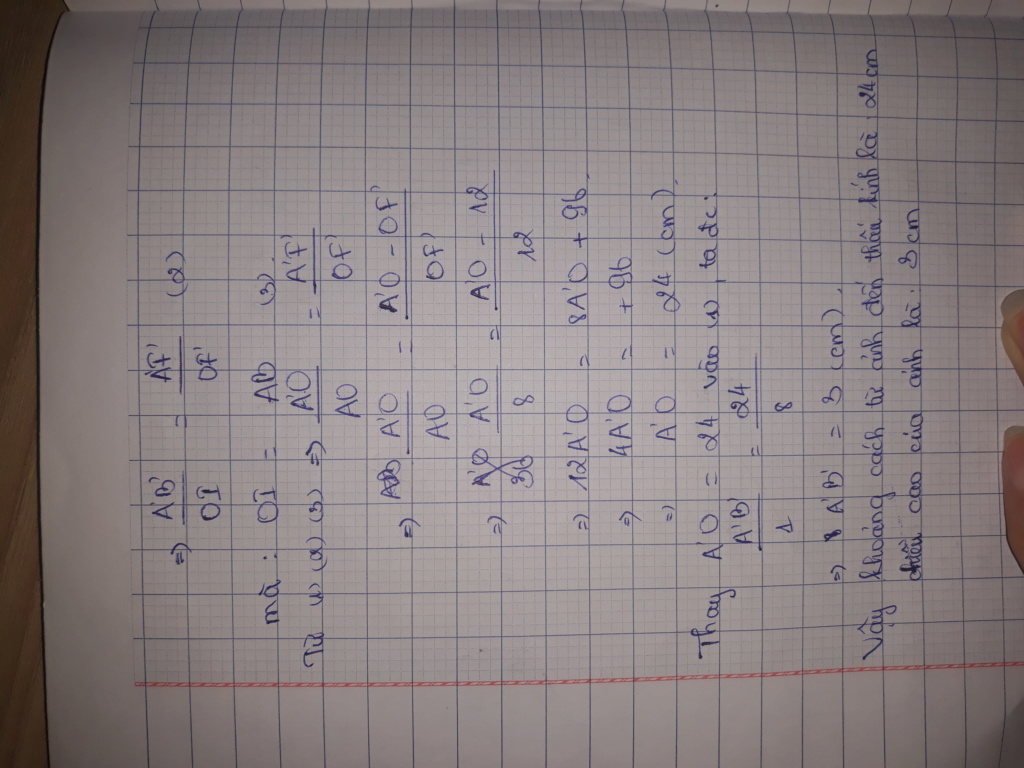 => A'B'/OI = AF'/OF' (2)
mà : OI = AB (3).
Từ (1) (2) (3) => A'O/AO = A'F'/OF'
=> A'O/AO = A'O - OF'/OF'
=> A'O/8 = A'O - 12/12
=> 12A'O = 8A'O + 96.
=> 4A'O = + 96
=> A'O = 24 (cm).
Thay A'O = 24 vào (1), ta đc:
A'B'/1 = 24/8
=> A'B' = 3 (cm).
Vậy khoảng cách từ ảnh đến thấu kính là : 24cm
chiều cao của ảnh là : 3 cm